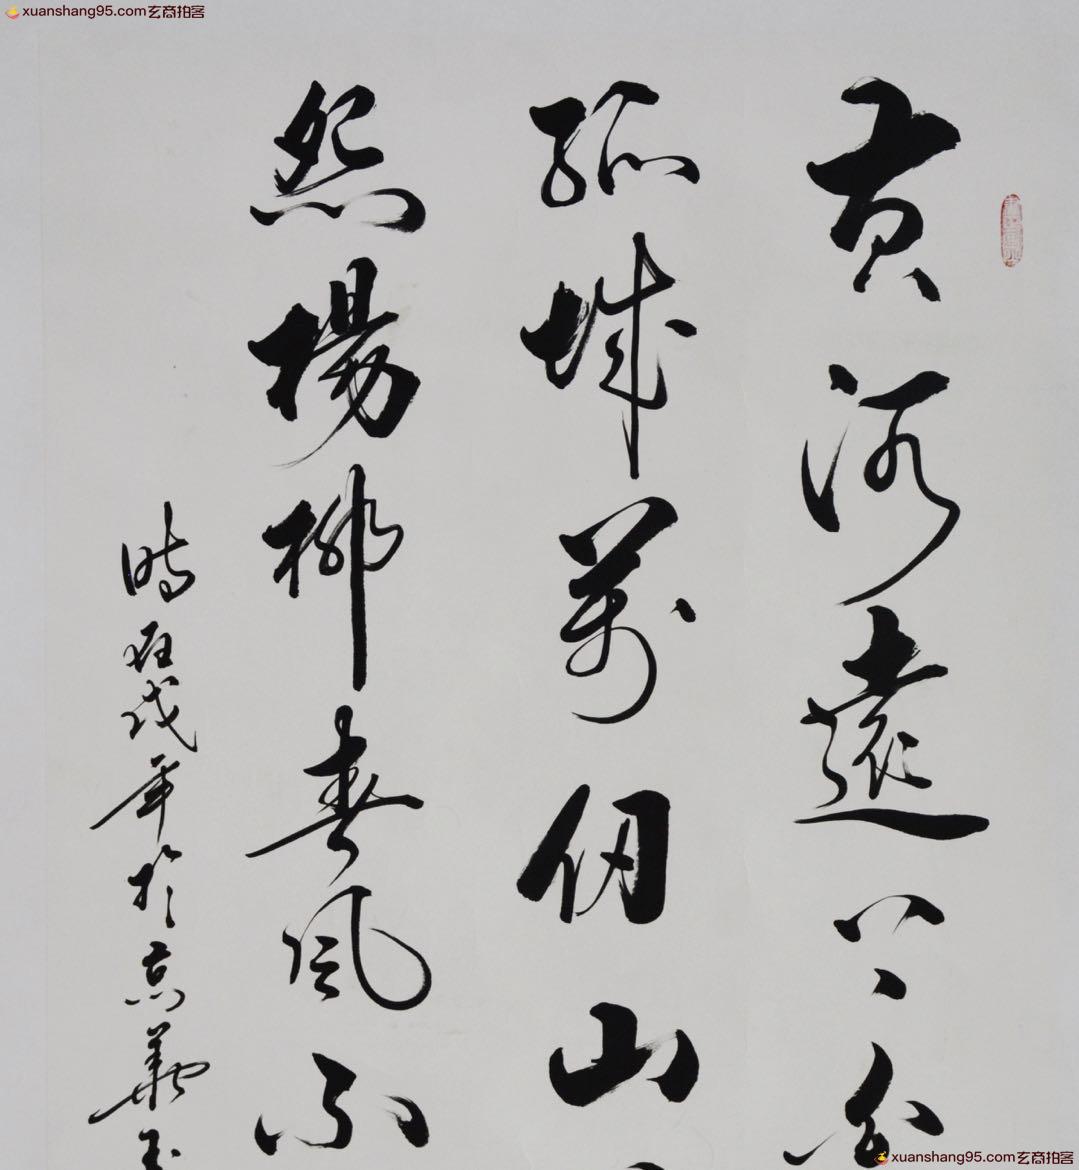 xuanshang95.com玄商拍客
黄河遠
孤城萬仞山
怨楊柳春風不
時在戌年於京華玉
xuanshang95.com玄商拍客